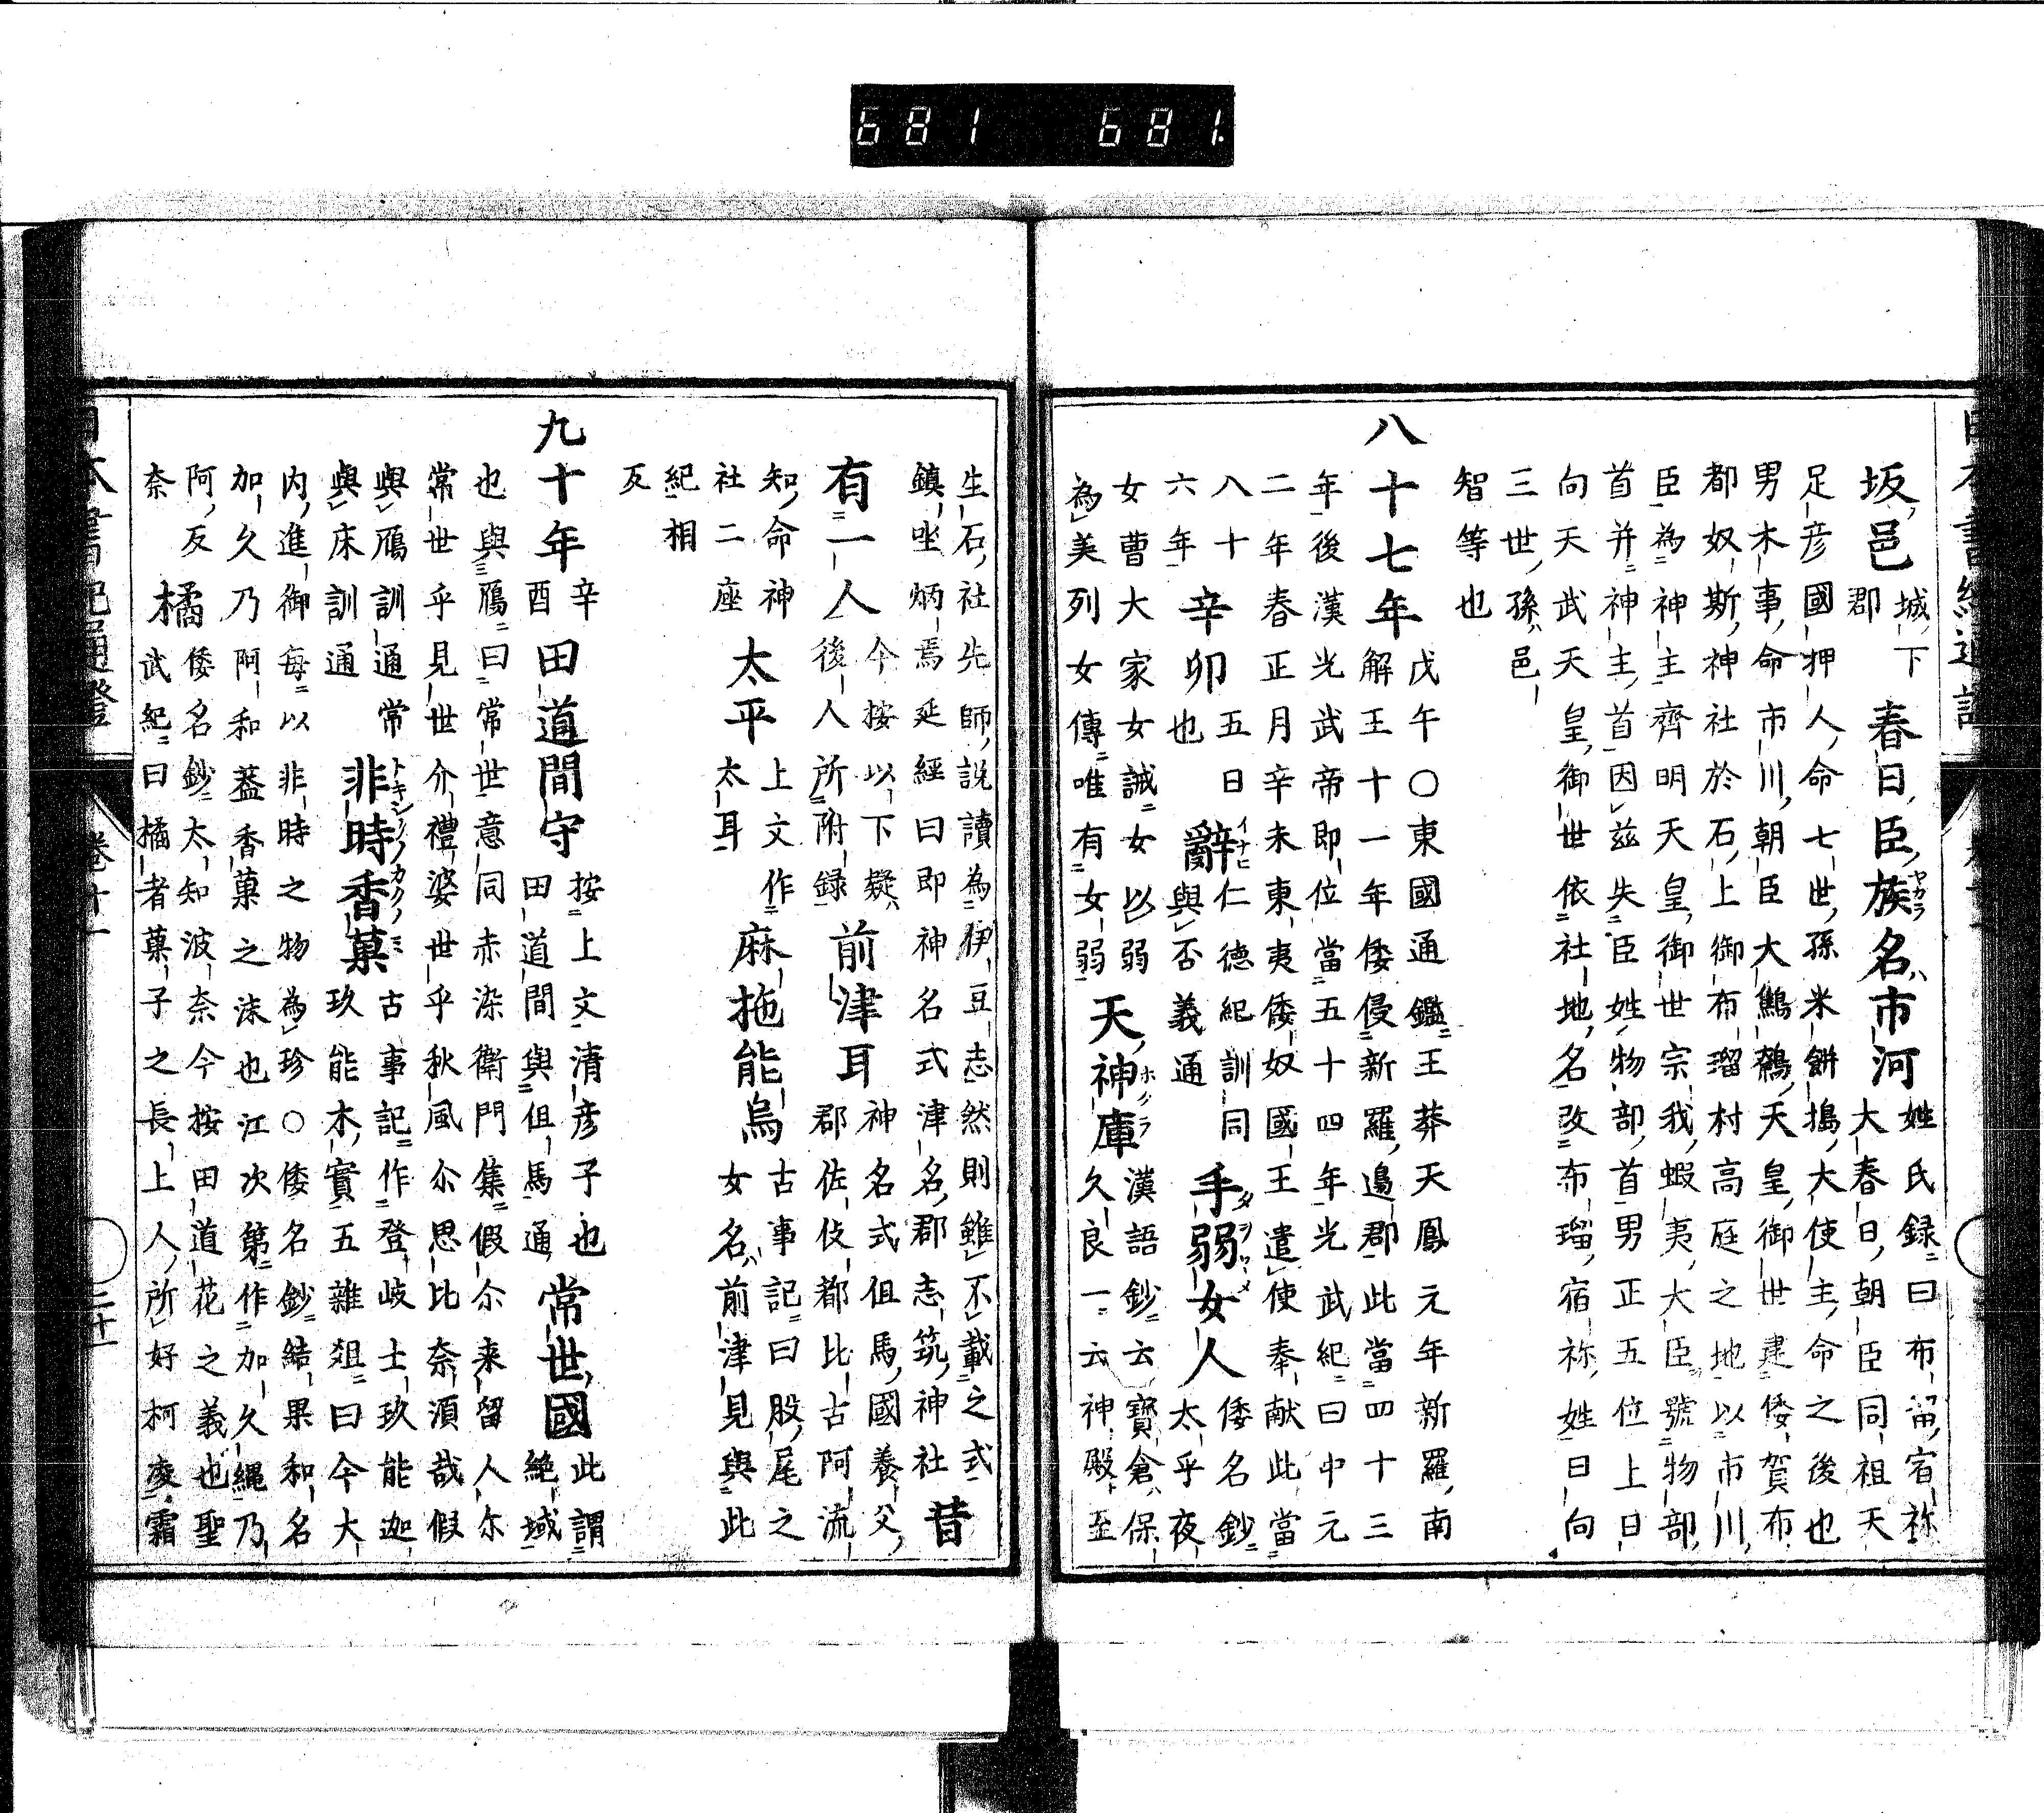 坂邑 城下郡 春日臣族名市河 姓氏録曰布留宿祢大春日朝臣同祖天
足彦國押人命七世孫米餅搗大使主命之後也
男木事命市川朝臣大鷦鷯天皇御世建倭賀布
都奴斯神社於石上御布瑠村高庭之地以市川
臣為神主齊明天皇御世宗我蝦夷大臣號物部
首并神主首因茲失臣姓物部首男正五位上日
向天武天皇御世依社地名改布瑠宿祢姓日向
三世孫邑
智等也
八十七年 戊午〇東國通鑑王莽天鳳元年新羅南
解王十一年倭侵新羅邉郡此當四十三
年後漢光武帝即位當五十四年光武紀曰中元
二年春正月辛未東夷倭奴國王遣使奉献此當
八十六年 辛卯 五日也 辭イナヒ 仁德紀訓同與否義通 手弱女人タヲヤメ 倭名鈔太乎夜
女曹大家女誡女以弱
為美列女傳唯有女弱 天神庫ホクラ 漢語鈔云寶倉保久良一云神殿至
生石社先師説讀為伊豆志然則雖不載之式
鎮坐炳焉延經曰即神名式津名郡志筑神社 昔
有一人 今按以下疑後人所附録 前津耳 神名式但馬國養父郡佐伎都比古阿流
知命神社二座 太平 上文作太耳 麻拖能烏 古事記曰股尾之女名前津見與此
紀相
反
九十年 辛酉 田道間守 按上文清彦子也田道間與但馬通 常世國 此謂絶域
也與鴈曰常世意同赤染衛門集假尒来留人尔
常世乎見世介禮婆世乎秋風尒思比奈湏哉假
與鴈訓通常
與床訓通 非時香菓トキシノカクノミ 古事記作登岐士玖能迦玖能木實五雜爼曰今大
内進御毎以非時之物為珍〇倭名鈔結果和名
加久乃阿和葢香菓之沫也江次第作加久縄乃
阿反 橘 倭名鈔太知波奈今按田道花之義也聖
奈武紀曰橘者菓子之長上人所好柯凌霜
卷十一
二十一
681 681